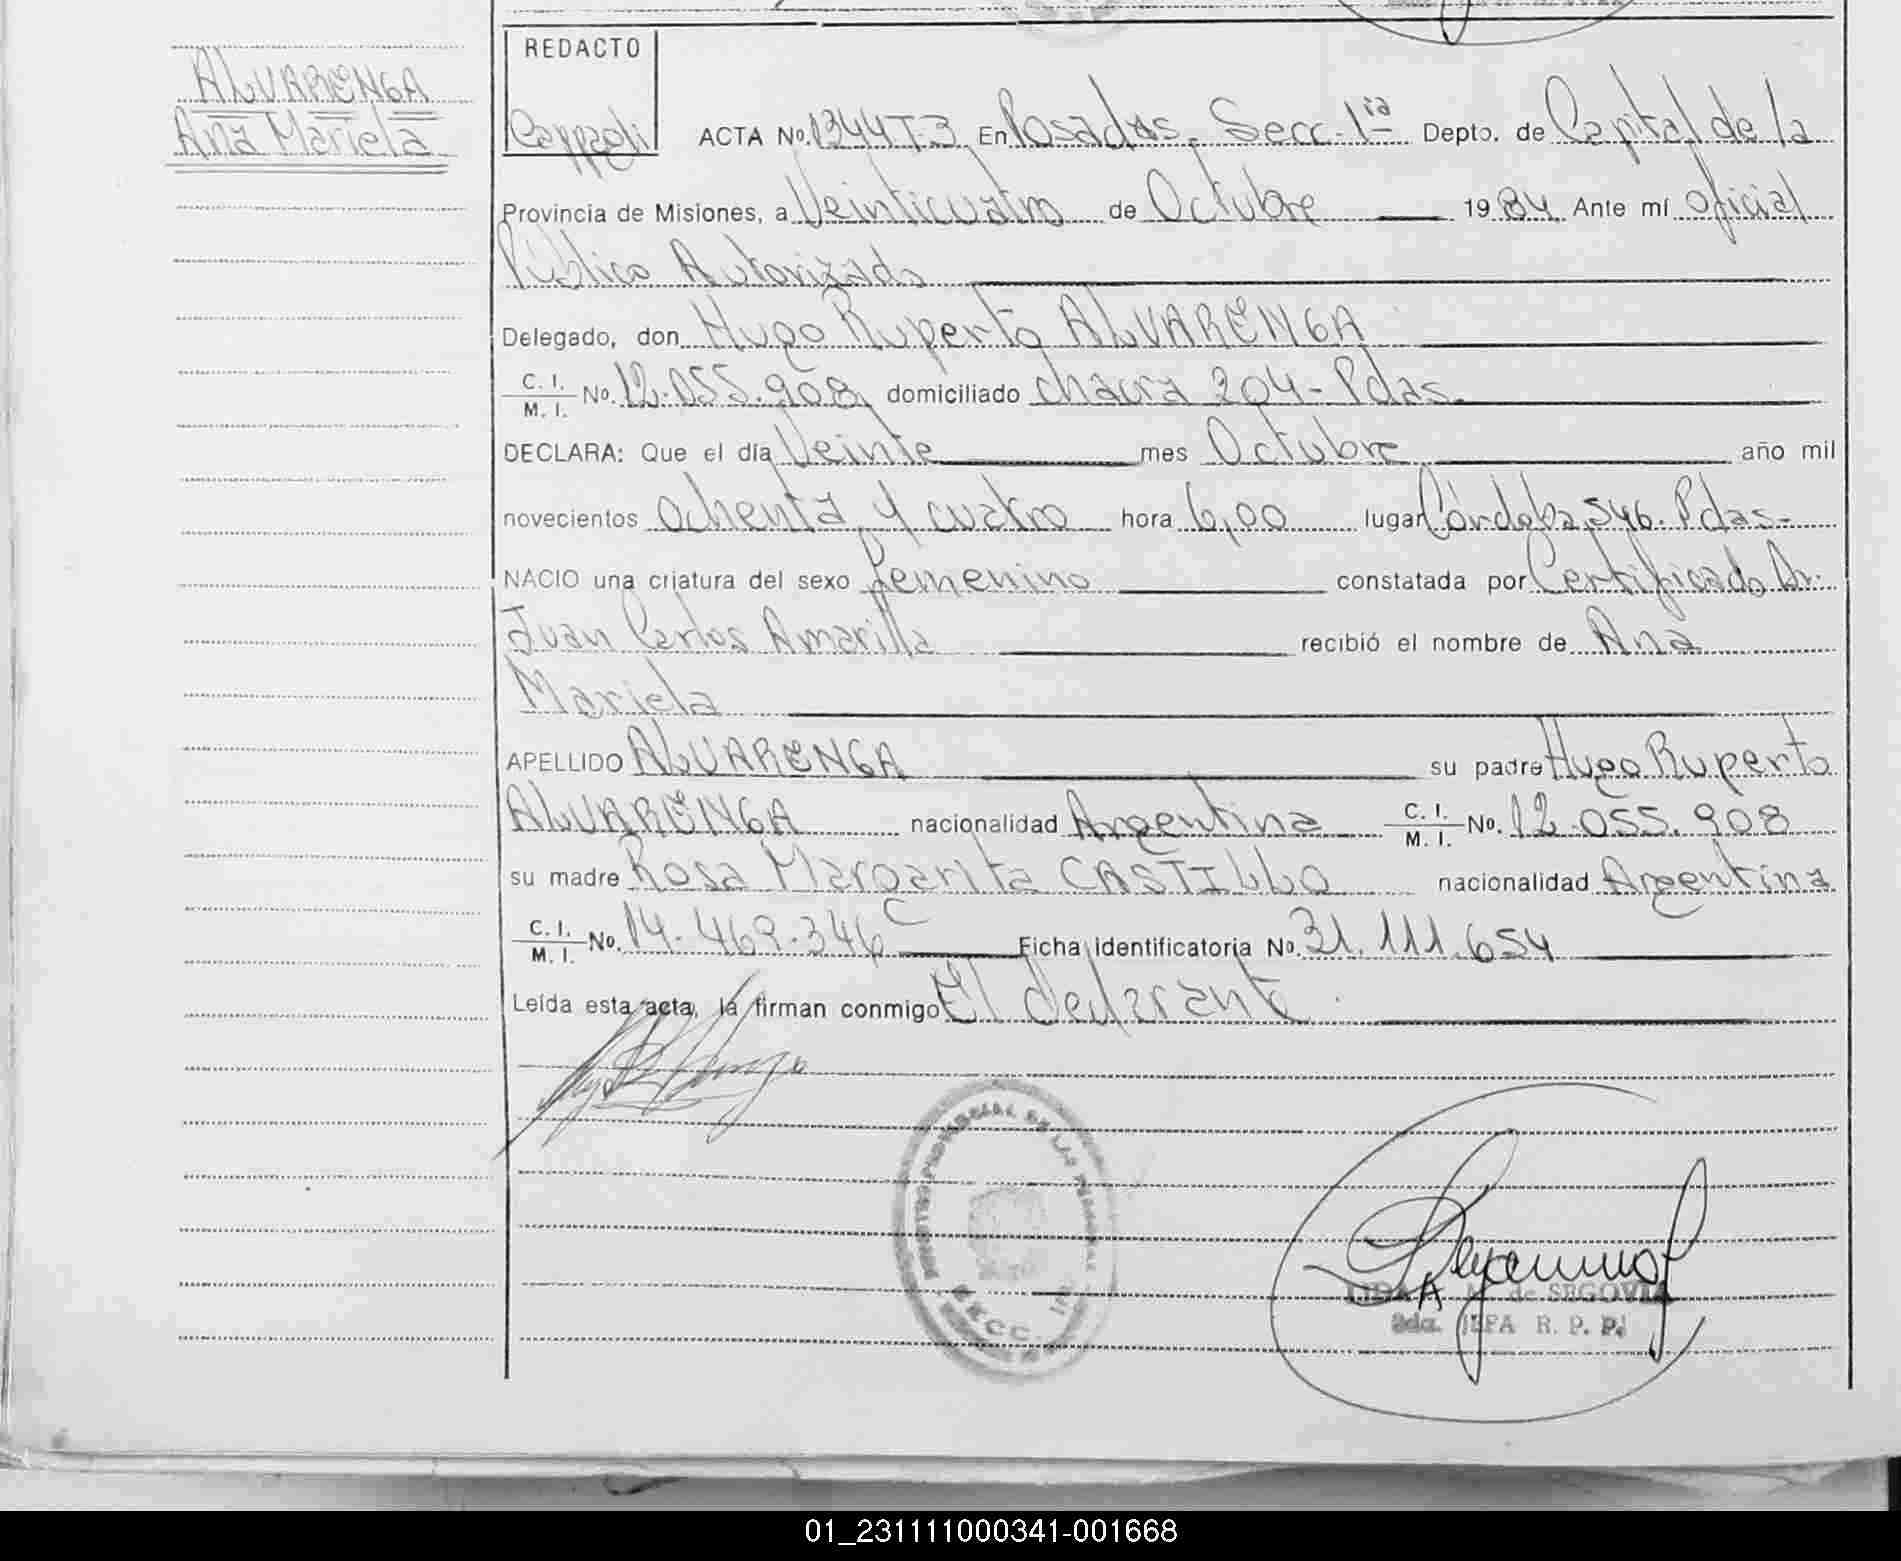 ALVARENGA
Ana Mariela
REDACTO
ACTA No. 1344 T-3 En Posadas, Secc. 1ra Depto. de Capital de la
Provincia de Misiones, a Veinticuatro de Octubre 1984 Ante mí Oficial
Público Autorizado
Delegado, don Hugo Ruperto ALVARENGA
C. I. / M. I. No. 12.055.908, domiciliado chacra 204 - Pdas.
DECLARA: Que el día Veinte mes Octubre año mil
novecientos ochenta y cuatro hora 6,00 lugar Córdoba 546. Pdas-
NACIO una criatura del sexo femenino constatada por Certificado Dr.
Juan Carlos Amarilla recibió el nombre de Ana
Mariela
APELLIDO ALVARENGA su padre Hugo Ruperto
ALVARENGA nacionalidad Argentina C. I. / M. I. No. 12.055.908
su madre Rosa Margarita CASTILLO nacionalidad Argentina
C. I. / M. I. No. 14.469.346 C Ficha identificatoria No. 31.111.654
Leída esta acta, la firman conmigo El declarante.
DE LAS PERSONAS
de SEGOVIA
2da. JEFA R. P. P.
01_231111000341-001668